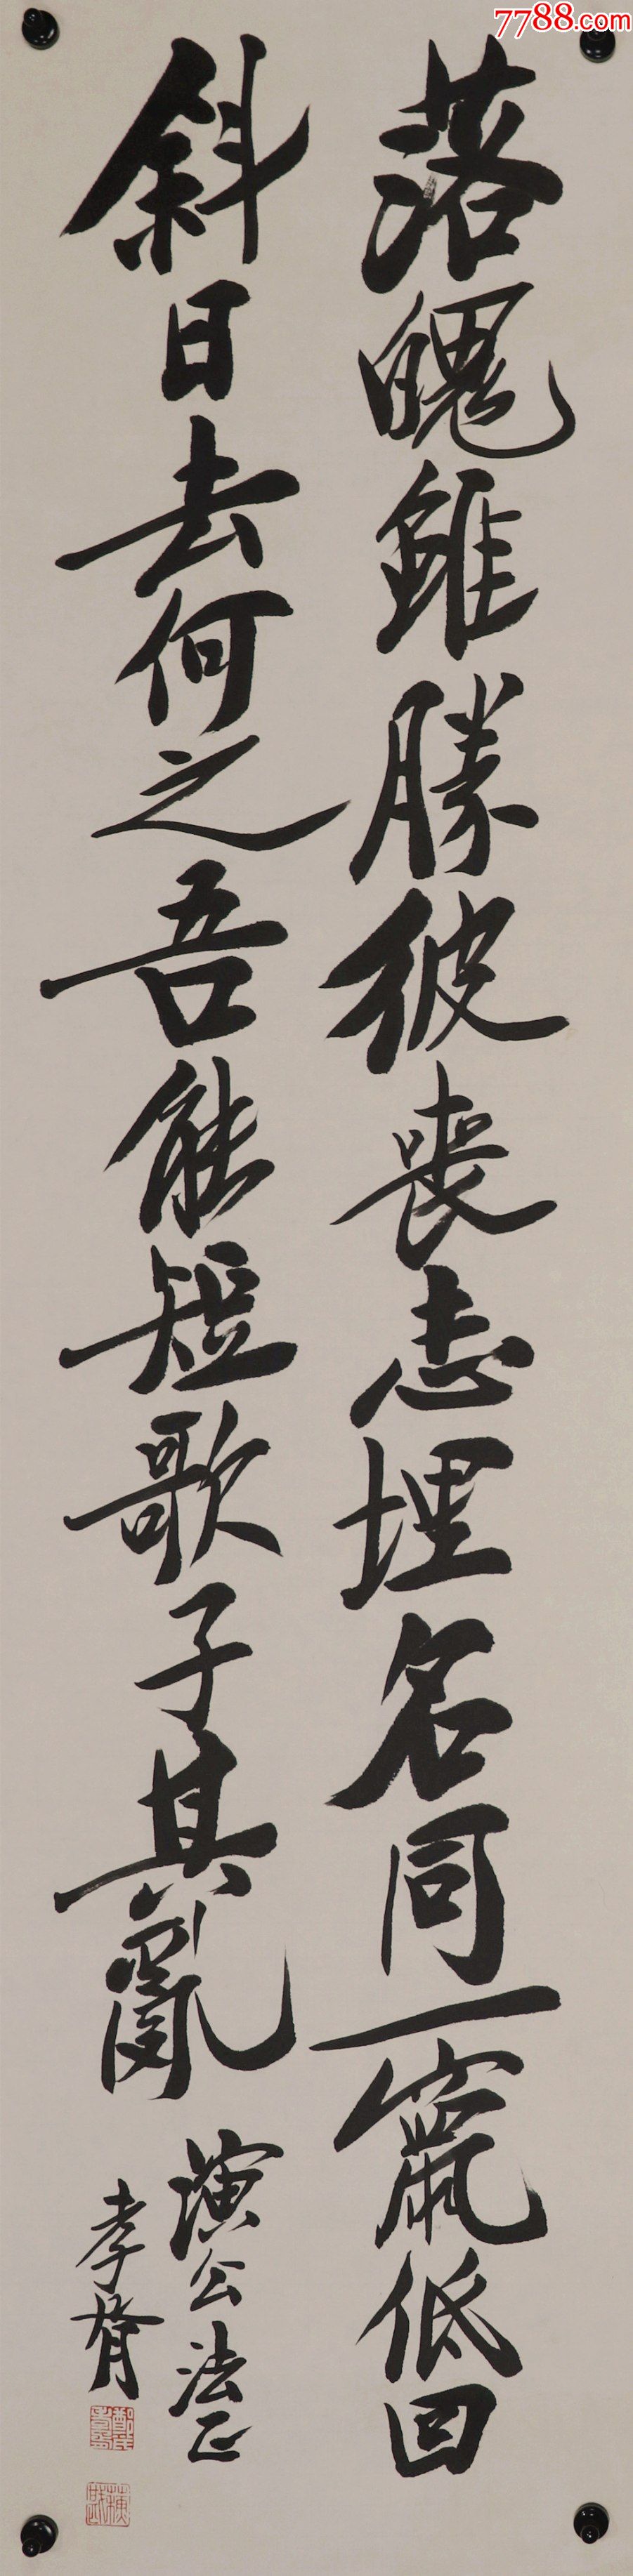 落魄雖勝彼喪志埋名同一竄低回
斜日去何之吾能短歌子其亂
演公法正
孝胥
7788.com